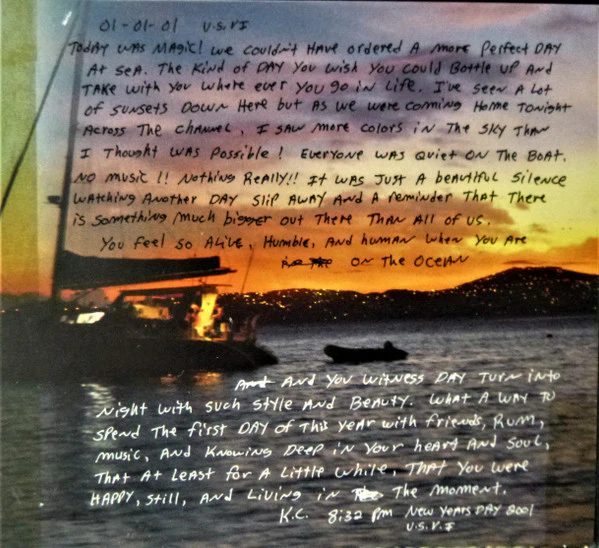 01-01-01 U.S.V.I
TODAY WAS MAGIC! WE COULDN'T HAVE ORDERED A MORE PERFECT DAY
AT SEA. THE KIND OF DAY YOU WISH YOU COULD BOTTLE UP AND
TAKE WITH YOU WHERE EVER YOU GO IN LIFE. I'VE SEEN A LOT
OF SUNSETS DOWN HERE BUT AS WE WERE COMMING HOME TONIGHT
ACROSS THE CHANNEL, I SAW MORE COLORS IN THE SKY THAN
I THOUGHT WAS POSSIBLE! EVERYONE WAS QUIET ON THE BOAT.
NO MUSIC!! NOTHING REALLY!! IT WAS JUST A BEAUTIFUL SILENCE
WATCHING ANOTHER DAY SLIP AWAY AND A REMINDER THAT THERE
IS SOMETHING MUCH BIGGER OUT THERE THAN ALL OF US.
YOU FEEL SO ALIVE, HUMBLE, AND HUMAN WHEN YOU ARE
ON THE OCEAN
AND YOU WITNESS DAY TURN INTO
NIGHT WITH SUCH STYLE AND BEAUTY. WHAT A WAY TO
SPEND THE FIRST DAY OF THIS YEAR WITH FRIENDS, RUM,
MUSIC, AND KNOWING DEEP IN YOUR HEART AND SOUL,
THAT AT LEAST FOR A LITTLE WHILE, THAT YOU WERE
HAPPY, STILL, AND LIVING IN THE MOMENT.
K.C. 8:32 PM NEW YEARS DAY 2001
U.S.V.I